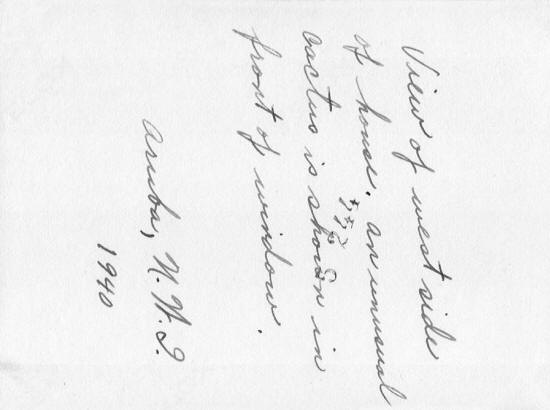 View of west side
of house. An unusual
cactus is shown in
front of window.
Aruba, N.W.I.
1940